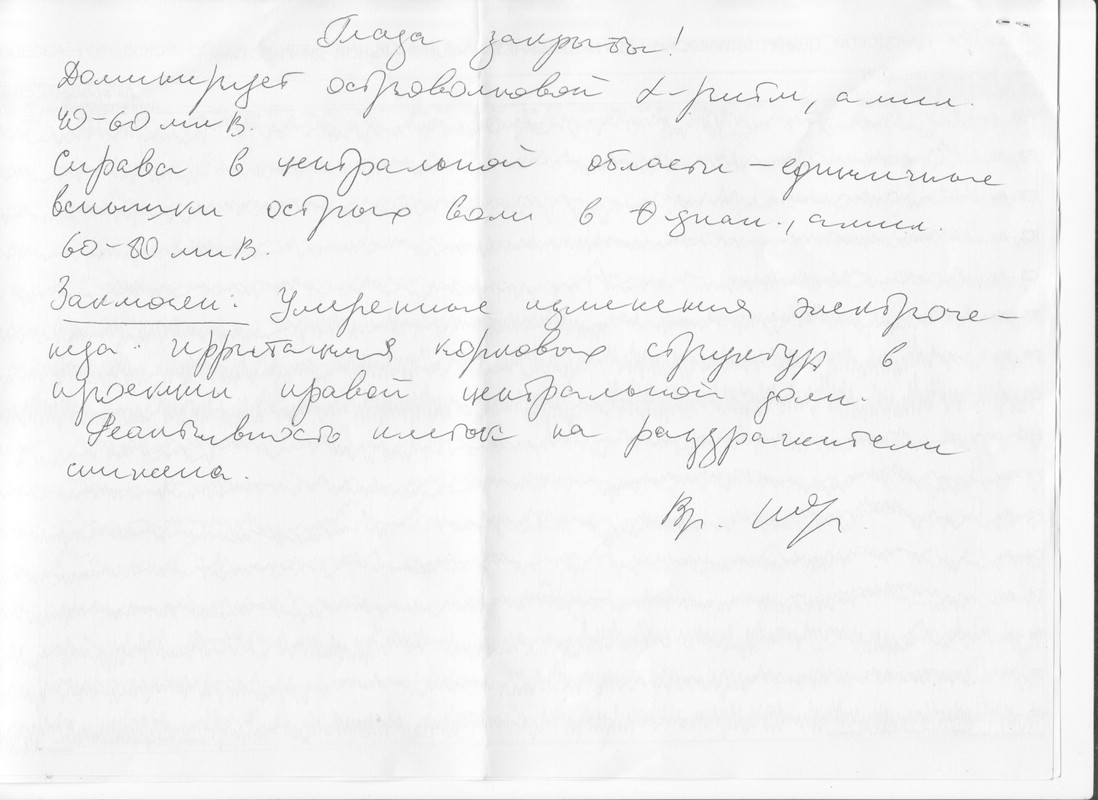 Глаза закрыты!
Доминирует островолновой α-ритм, ампл.
40-60 мкВ.
Справа в центральной области - единичные
вспышки острых волн в θ диап., ампл.
60-80 мкВ.
Заключен: Умеренные изменения электроге-
неза. Ирритация корковых структур в
проекции правой центральной доли.
Реактивность клеток на раздражители
снижена.
Вр.